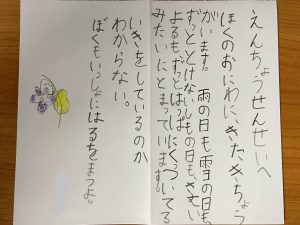 えんちょうせんせいへ
ぼくのおにわに、きたきちょう
がいます。雨の日も雪の日も、
ずっととけないしもの日も、さむい
よるも、ずっとはっぱにくっついてる
みたいにとまっています。
いきをしているのか
わからない。
ぼくもいっしょにはるをまつよ。